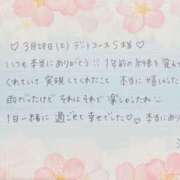 ♡ 3月28日(土) デートコース S様 ♡
いつも本当にありがとう!! 1年前の お話を 覚え
くれていて 実現してくれたこと 本当に 嬉しい
雨だったけど それはそれで 楽しかったね
1日一緒に 過ごせて 幸せでした♡